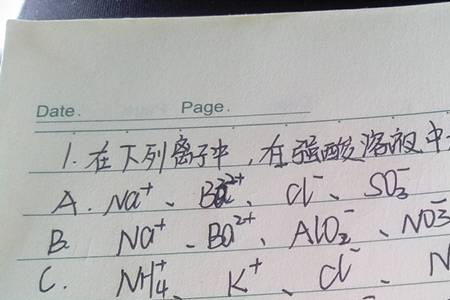 Date. Page.
1. 在下列离子中,在强酸溶液中
A. Na⁺、Ba²⁺、Cl⁻、SO₃⁻
B. Na⁺、Ba²⁺、AlO₂⁻、NO₃⁻
C. NH₄⁺、K⁺、Cl⁻、N